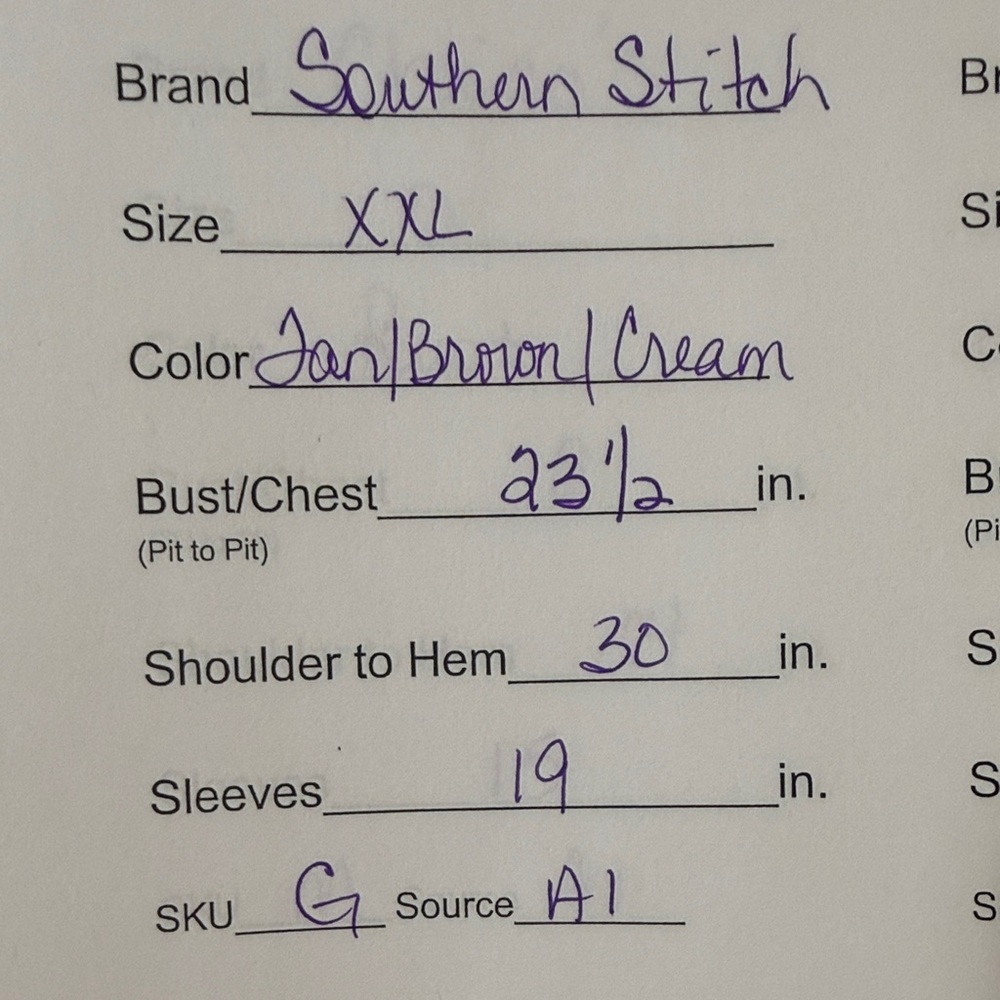 Brand Southern Stitch
Size XXL
Color Tan/Brown/Cream
Bust/Chest 23 1/2 in.
(Pit to Pit)
Shoulder to Hem 30 in.
Sleeves 19 in.
SKU G Source A1
Br
Si
Co
B
(Pi
S
S
S